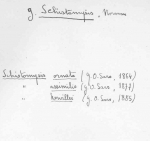 g. Schistomysis, Norman
Schistomysis ornata (g. O. Sars, 1864)
" assimilis (g. O. Sars, 1877)
" (g. O. Sars, 1885)